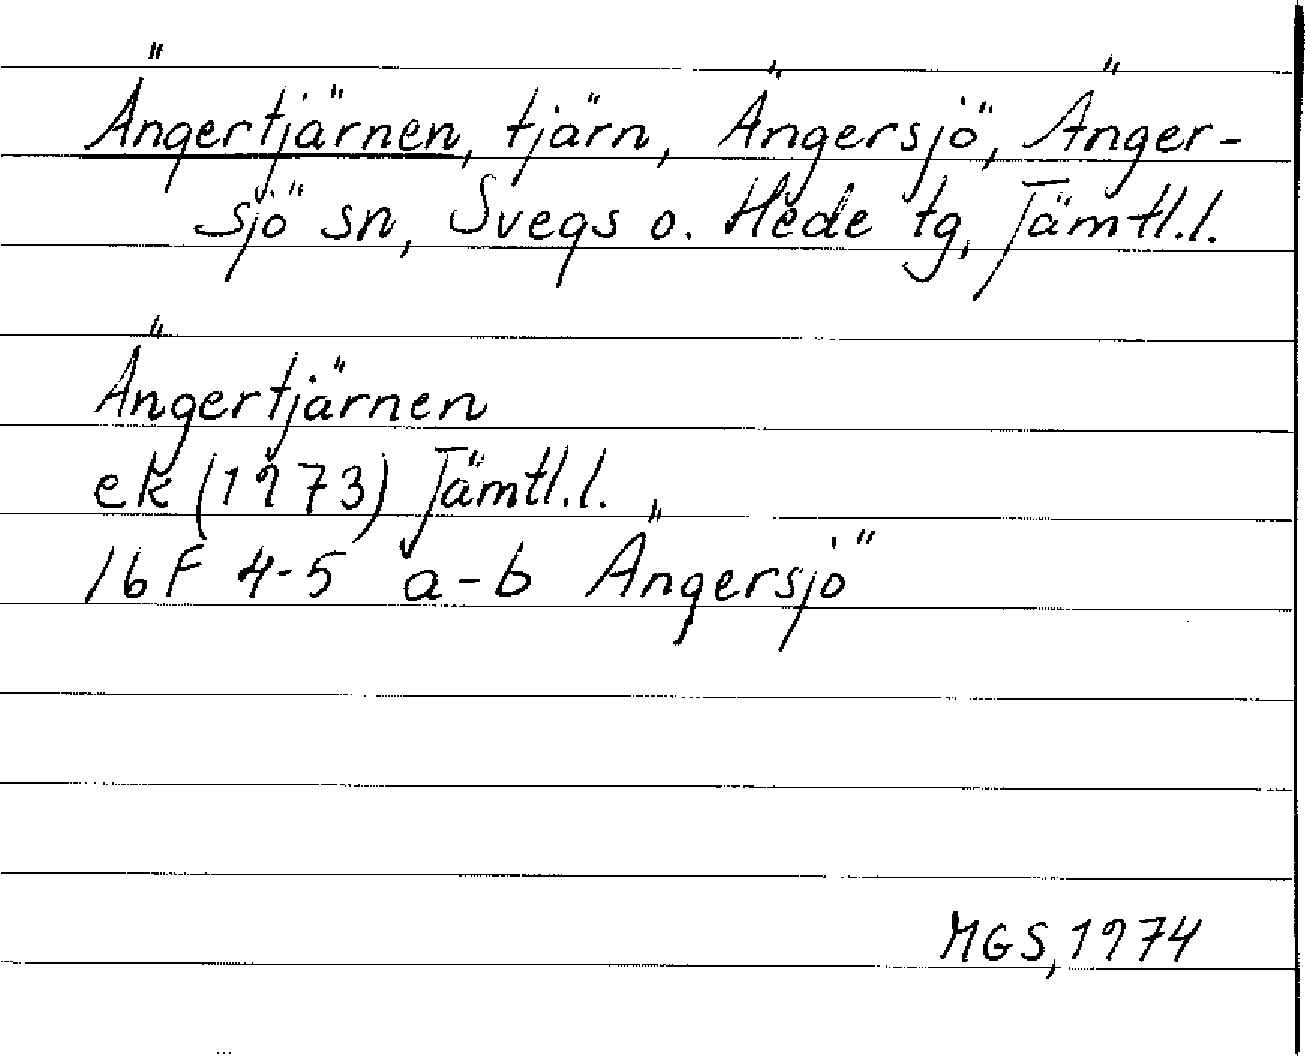 Ängertjärnen, tjärn, Ängersjö, Änger-
sjö sn, Svegs o. Hede tg, Jämtl.l.
Ängertjärnen
ek (1973) Jämtl.l.
16F 4-5 a-b Ängersjö
MGS, 1974